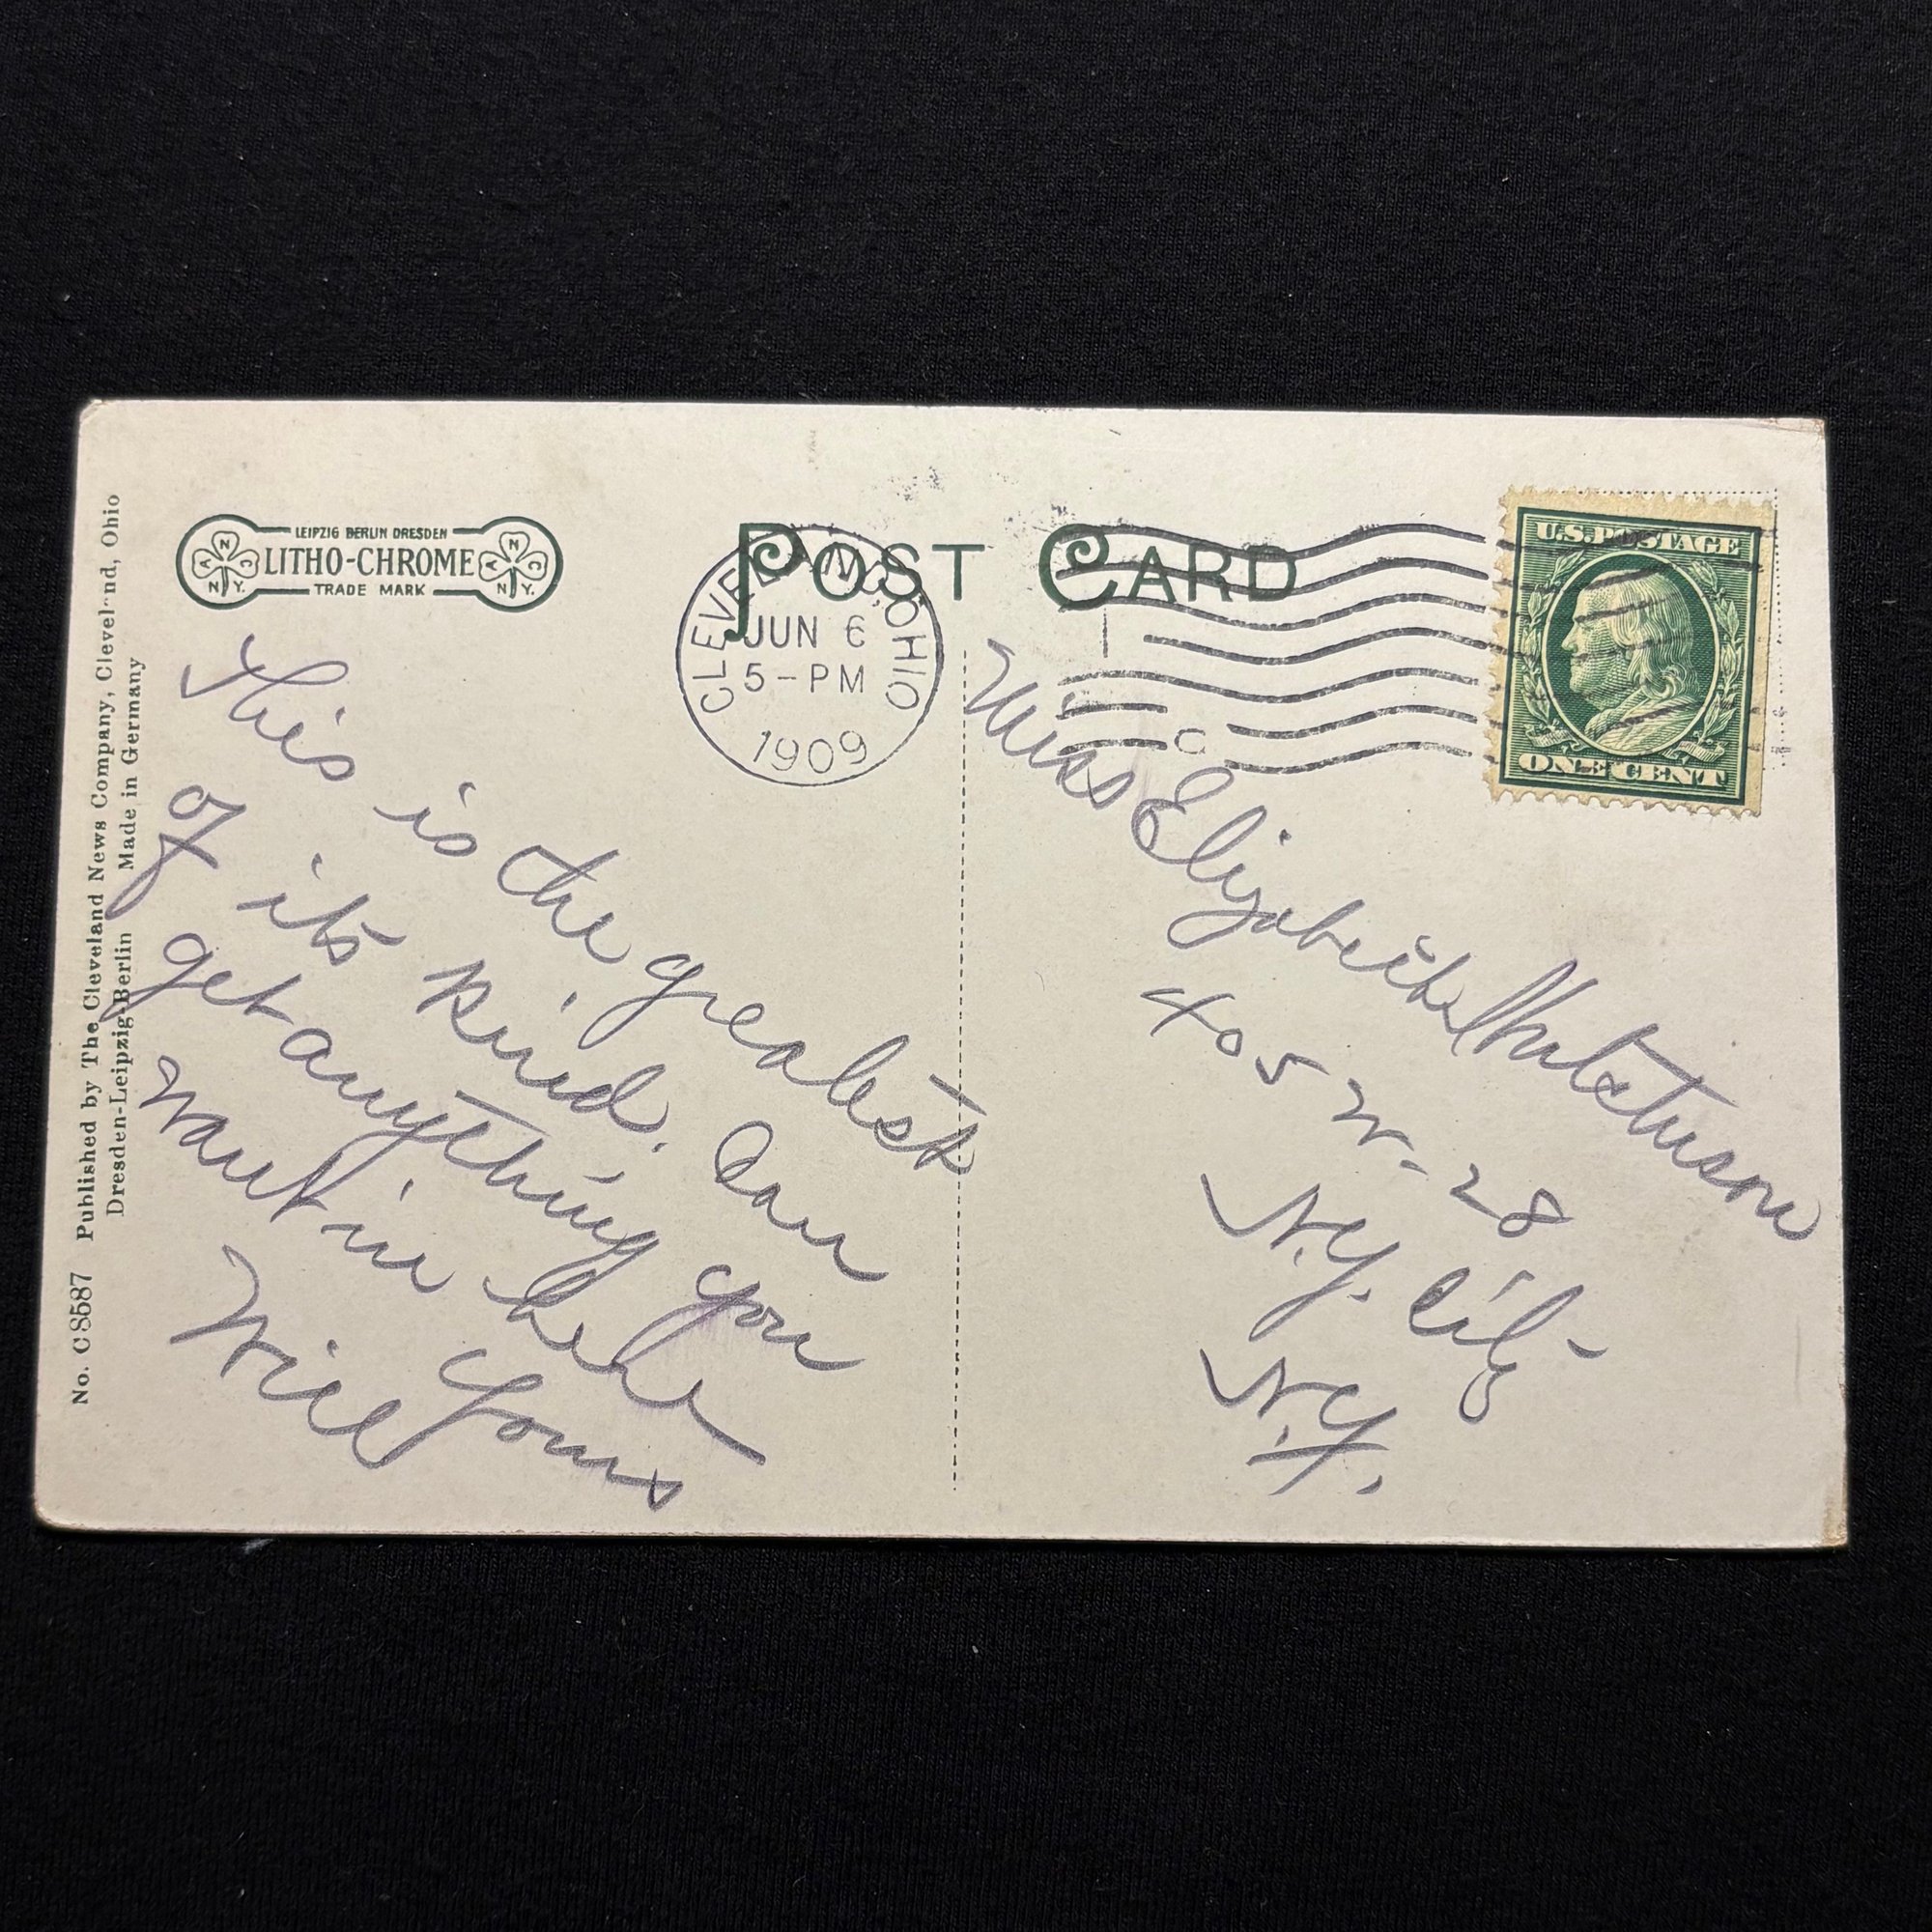 No. C 8587 Published by The Cleveland News Company, Cleveland, Ohio
Dresden-Leipzig-Berlin Made in Germany
LEIPZIG BERLIN DRESDEN
LITHO-CHROME
TRADE MARK
N
A C
N Y.
N
A C
N Y.
POST CARD
CLEVELAND, OHIO
JUN 6
5-PM
1909
U.S. POSTAGE
ONE CENT
This is the greatest
of its kind. Can
get anything you
want in here
Yours
Will
Miss Elizabeth
405 W. 28
N.Y. City
N.Y.